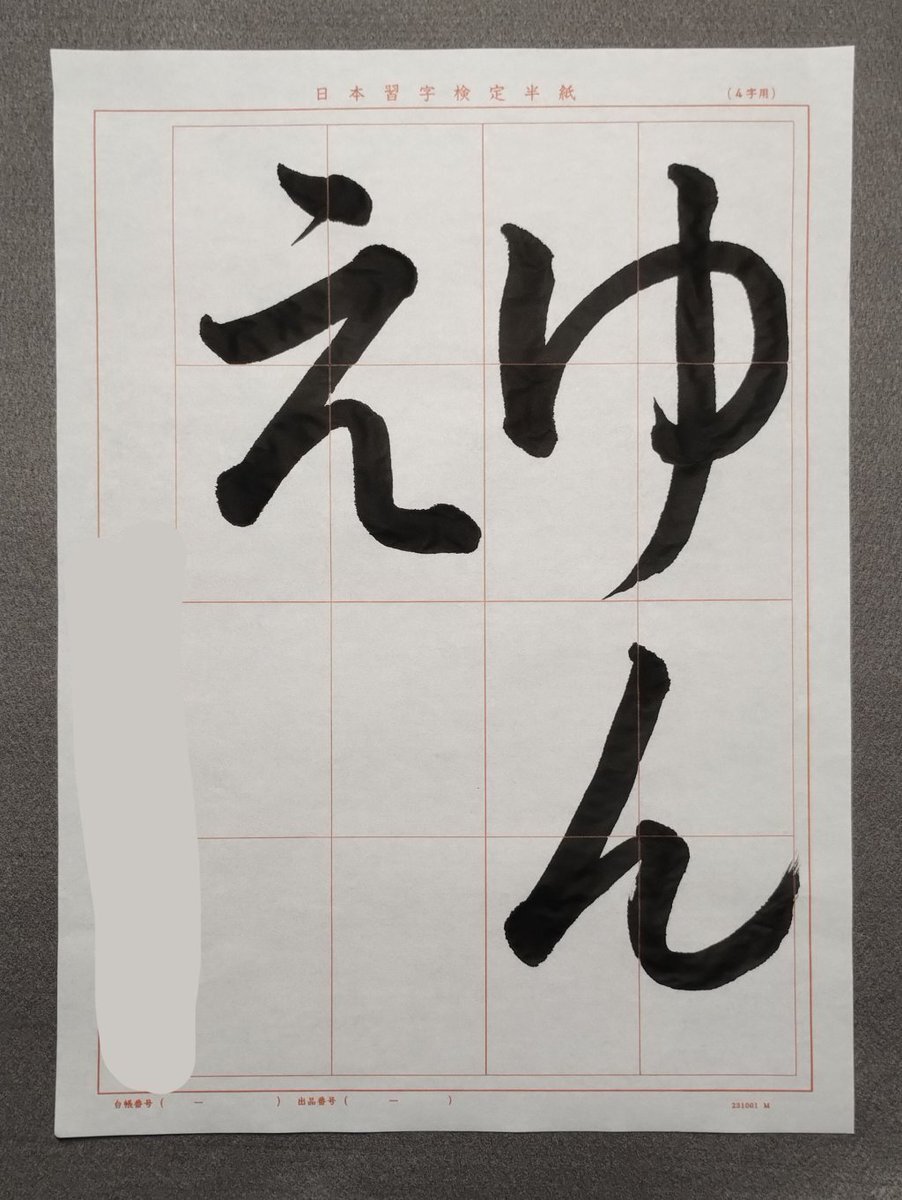 日本習字検定半紙
(4字用)
ゆん
え
台帳番号 ( ー ) 出品番号 ( ー )
231061 M